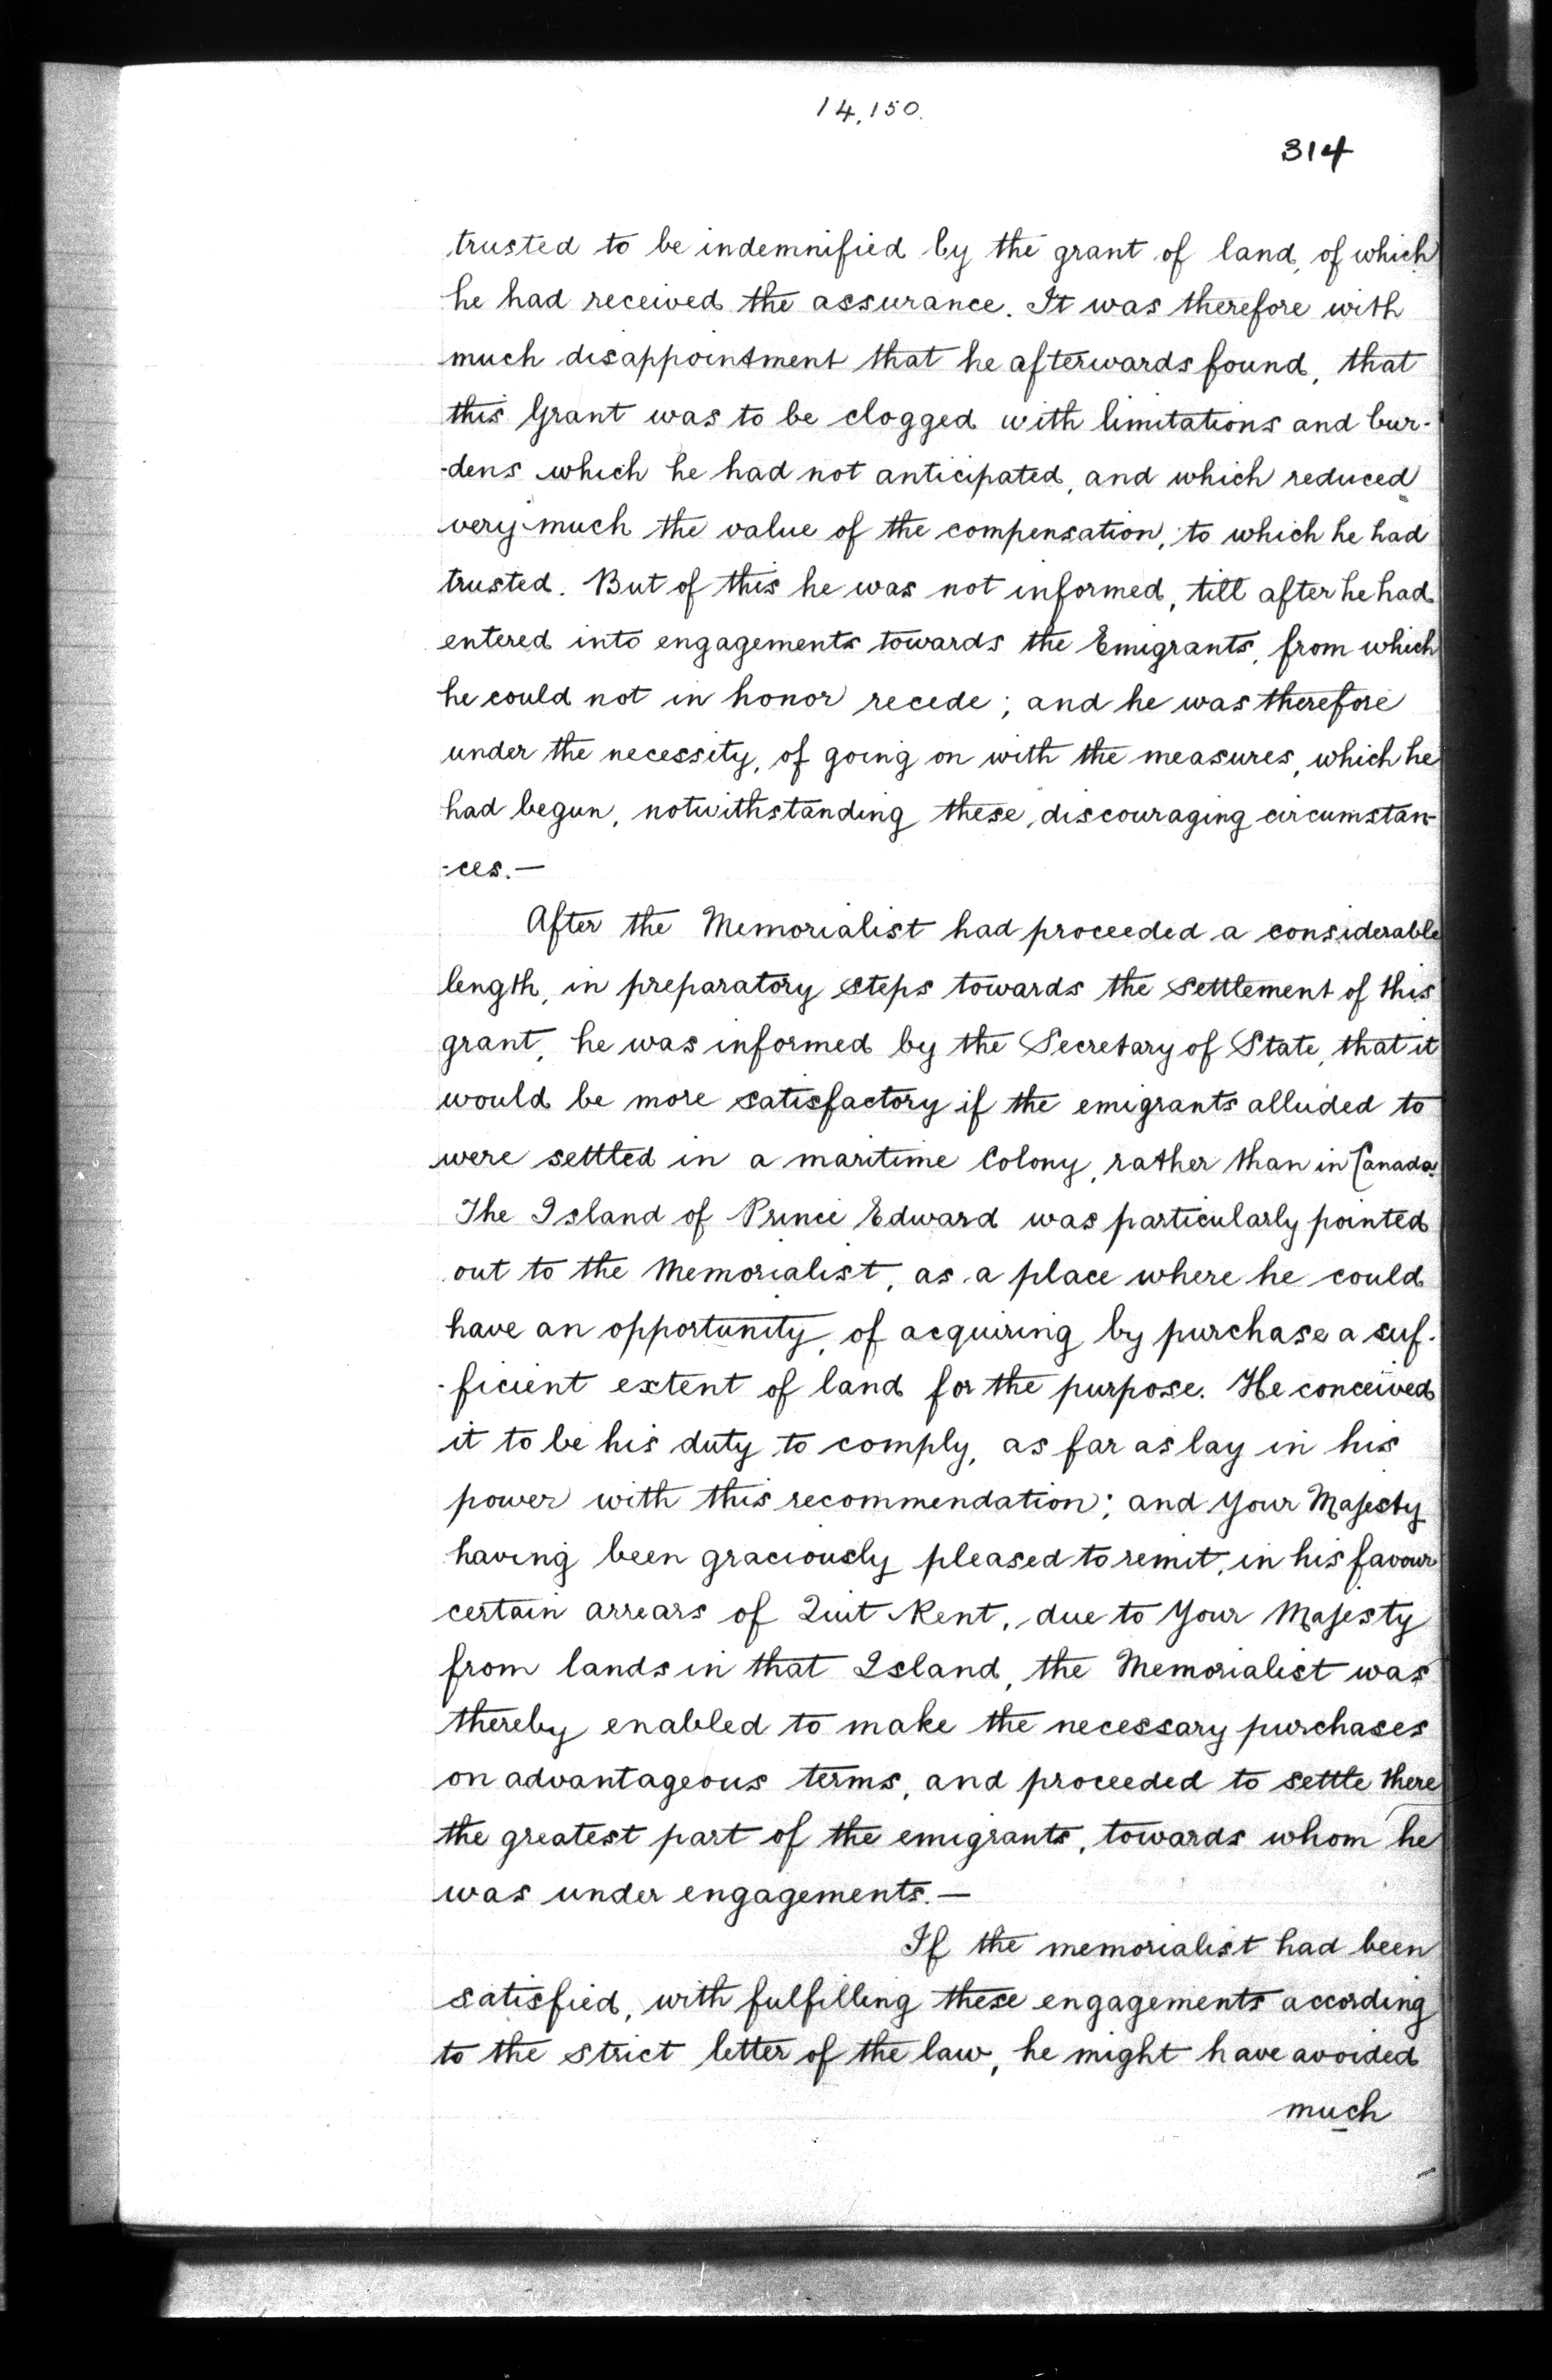 14,150.
314
trusted to be indemnified by the grant of land, of which
he had received the assurance. It was therefore with
much disappointment that he afterwards found, that
this Grant was to be clogged with limitations and bur-
-dens which he had not anticipated, and which reduced
very much the value of the compensation, to which he had
trusted. But of this he was not informed, till after he had
entered into engagements towards the Emigrants, from which
he could not in honor recede; and he was therefore
under the necessity, of going on with the measures, which he
had begun, notwithstanding these discouraging circumstan-
-ces.—
After the Memorialist had proceeded a considerable
length, in preparatory steps towards the settlement of this
grant, he was informed by the Secretary of State, that it
would be more satisfactory if the emigrants alluded to
were settled in a maritime Colony, rather than in Canada.
The Island of Prince Edward was particularly pointed
out to the Memorialist, as a place where he could
have an opportunity, of acquiring by purchase a suf-
-ficient extent of land for the purpose. He conceived
it to be his duty to comply, as far as lay in his
power with this recommendation; and Your Majesty
having been graciously pleased to remit, in his favour
certain arrears of Quit Rent, due to Your Majesty
from lands in that Island, the Memorialist was
thereby enabled to make the necessary purchases
on advantageous terms, and proceeded to settle there
the greatest part of the emigrants, towards whom he
was under engagements.—
If the memorialist had been
satisfied, with fulfilling these engagements according
to the strict letter of the law, he might have avoided
much